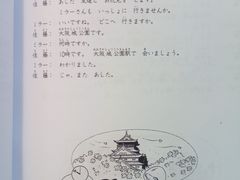 佐藤：あした 友達と お花見を します。
ミラーさんも いっしょに 行きませんか。
ミラー：いいですね。どこへ 行きますか。
佐藤：大阪城公園です。
ミラー：何時ですか。
佐藤：10時です。大阪城公園駅で 会いましょう。
ミラー：わかりました。
佐藤：じゃ、また あした。